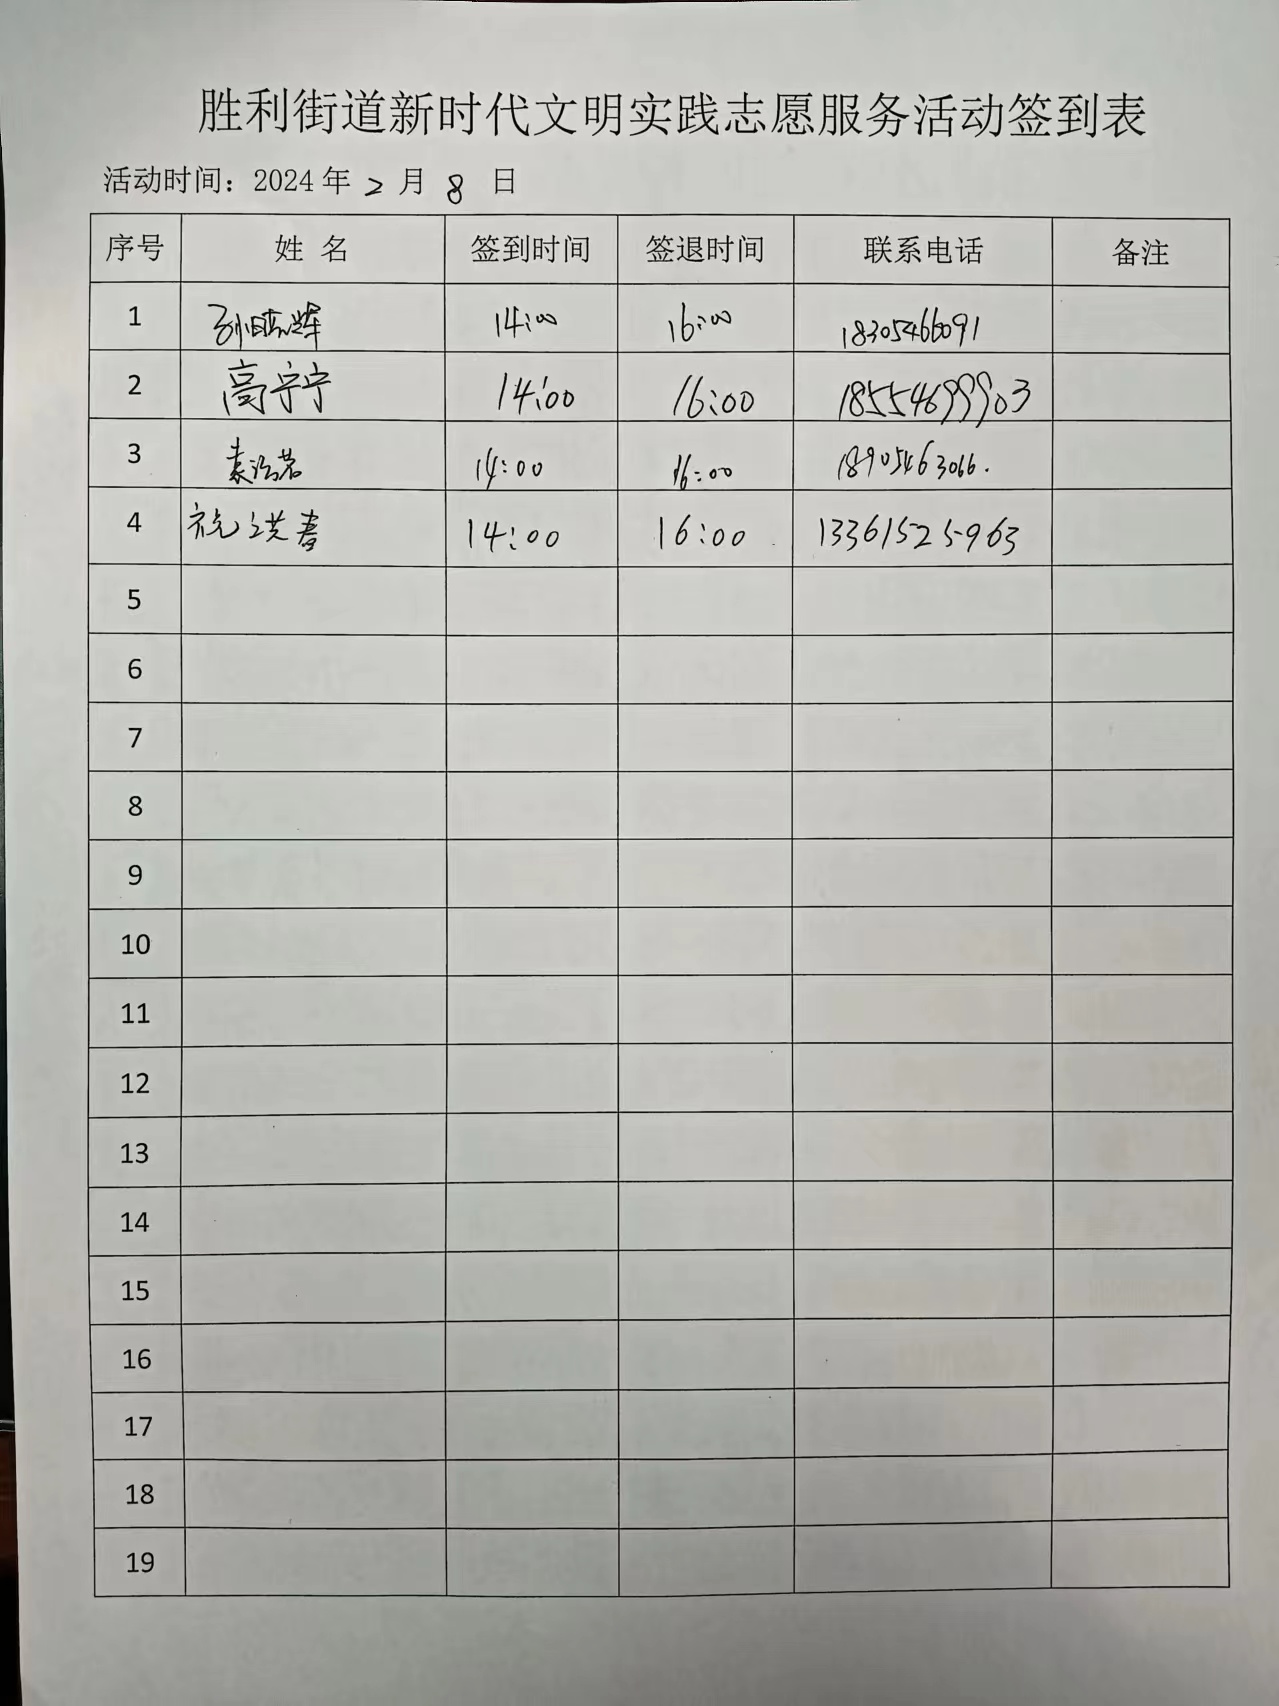 胜利街道新时代文明实践志愿服务活动签到表
活动时间：2024年 2 月 8 日
序号 姓 名 签到时间 签退时间 联系电话 备注
1 14:00 16:00 18305466091
2 高宁宁 14:00 16:00 18554699903
3 14:00 16:00 18905463066.
4 祝洪春 14:00 16:00 13361525963
5
6
7
8
9
10
11
12
13
14
15
16
17
18
19